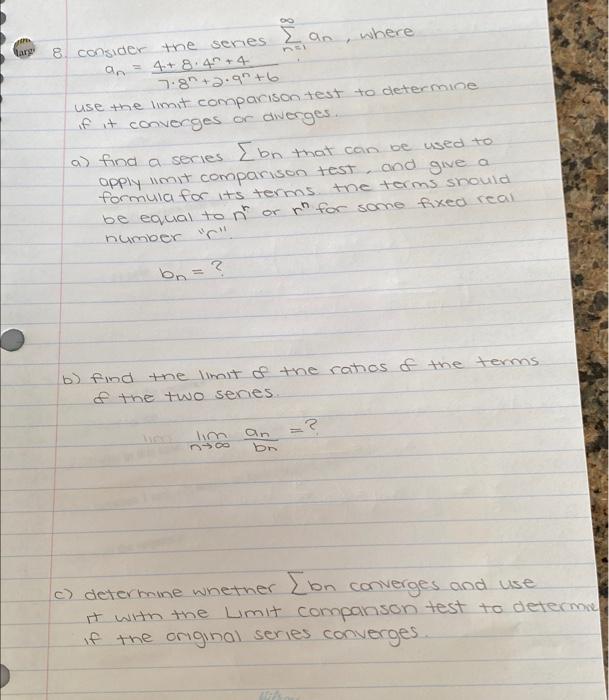 ∞
8. consider the series Σ an , where
n=1
an = 4 + 8 · 4ⁿ + 4
7 · 8ⁿ + 2 · 9ⁿ + 6
use the limit comparison test to determine
if it converges or diverges.
a) find a series Σ bn that can be used to
apply limit comparison test, and give a
formula for its terms. the terms should
be equal to nʳ or rⁿ for some fixed real
number "r".
bn = ?
b) find the limit of the ratios of the terms
of the two series.
lim an = ?
n→∞ bn
c) determine whether Σ bn converges and use
it with the Limit comparison test to determine
if the original series converges.